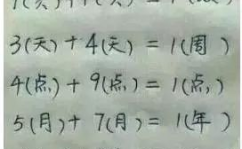 3(天)+4(天)=1(周)
4(点)+9(点)=1(点)
5(月)+7(月)=1(年)